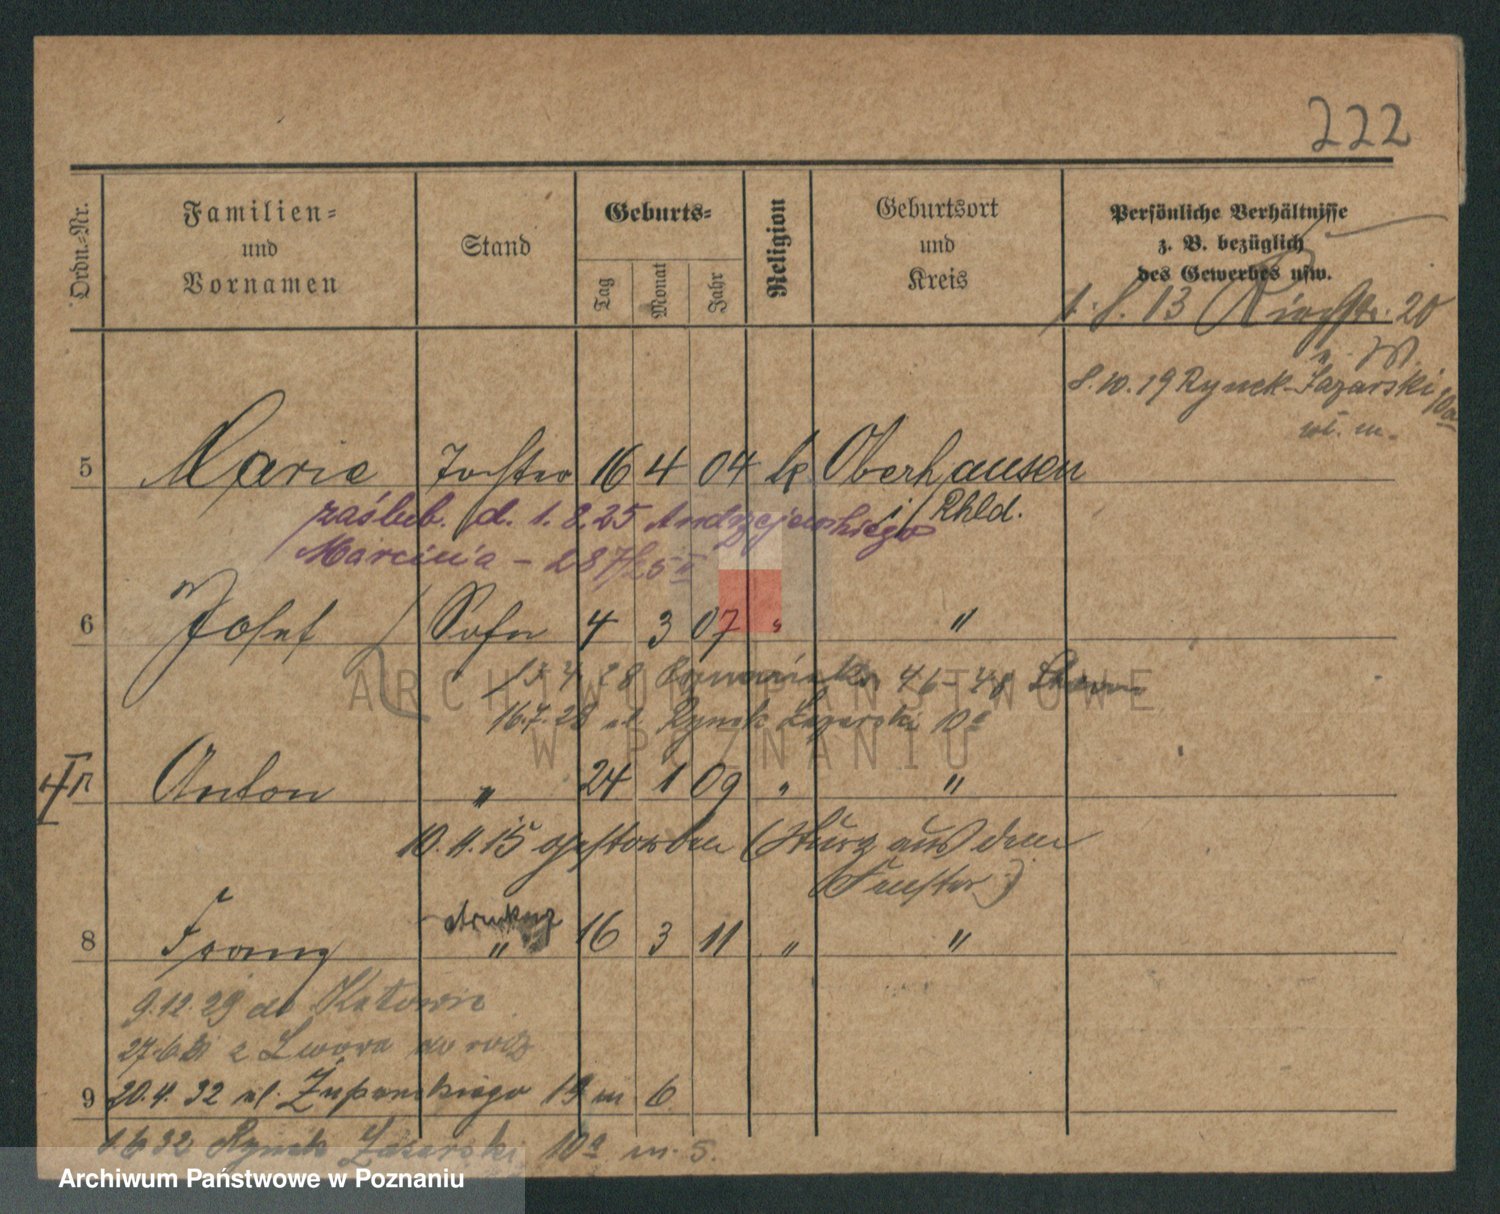 222
Ordn.-Nr.
Familien-
und
Vornamen
Stand
Geburts-
Tag
Monat
Jahr
Religion
Geburtsort
und
Kreis
Persönliche Verhältnisse
z. B. bezüglich
des Gewerbes usw.
1. 8. 13 Kirchstr. 20
8. 10. 19 Rynek Łazarski 10a
wł. m.
5 Marie Tochter 16 4 04 k. Oberhausen
i/Rhld.
zaślub. d. 1. 8. 25 Andrzejewskiego
Marcina - 287/25 II
6 Josef Sohn 4 3 07 " "
46-48
16.7.28 ul. Rynek Łazarski 10a
7 Anton " 24 1 09 " "
10. 4. 15 gestorben (Sturz aus dem
Fenster)
8 Franz drukarz " 16 3 11 " "
9.12.29 do Katowic
z Lwowa do rodz
9 20. 4. 32 ul. Żupańskiego 13 m 6
1.6 32 Rynek Łazarski 10a m. 5.
ARCHIWUM PAŃSTWOWE
W POZNANIU
Archiwum Państwowe w Poznaniu